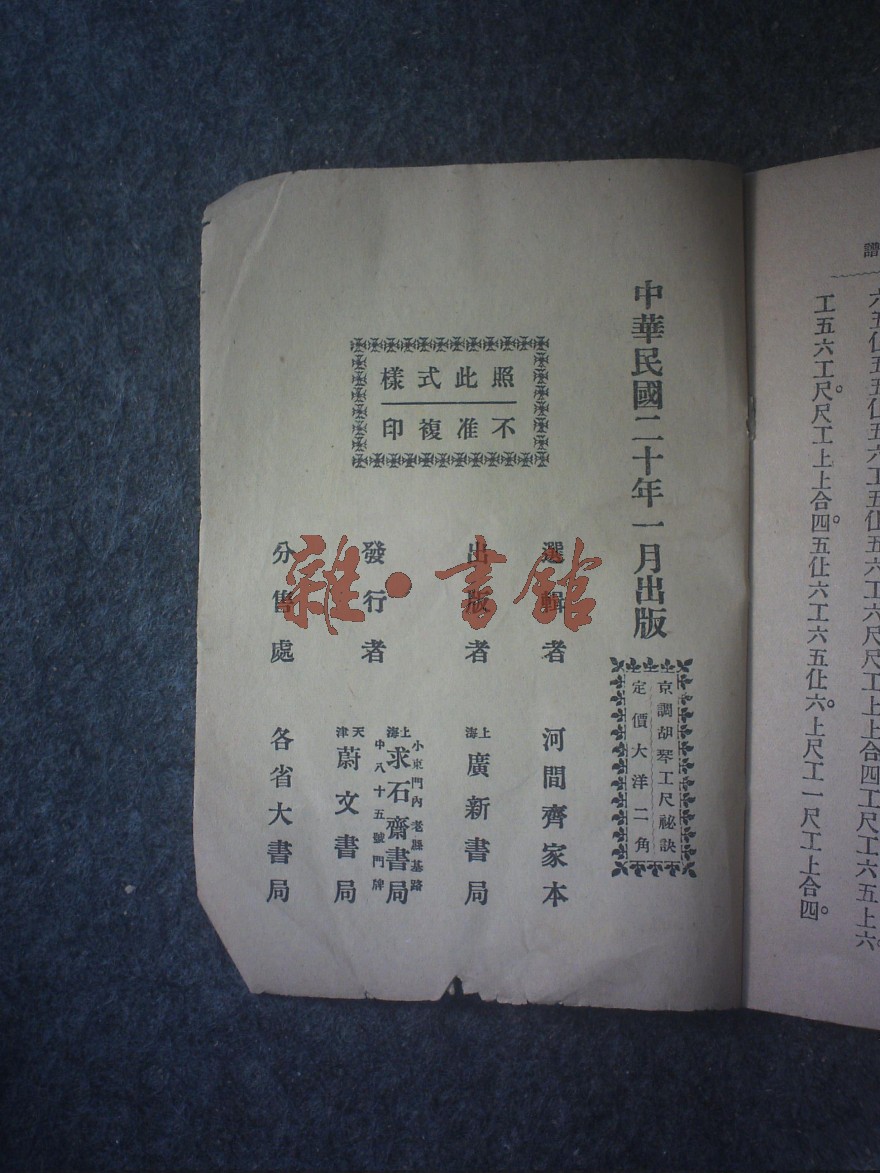 譜
六五仩五五仩五六工五仩五六工六尺尺工上上合四工尺工六五上六。
工五六工尺。尺工上上合四。五仩六工六五仩六。上尺工一尺工上合四。
中華民國二十年一月出版
京調胡琴工尺祕訣
定價大洋二角
照此式樣
不准複印
選輯者 河間齊家本
出版者 上海廣新書局
發行者
上海求石齋書局
小東門內老縣基路
中八十五號門牌
天津蔚文書局
分售處 各省大書局
雜·書館